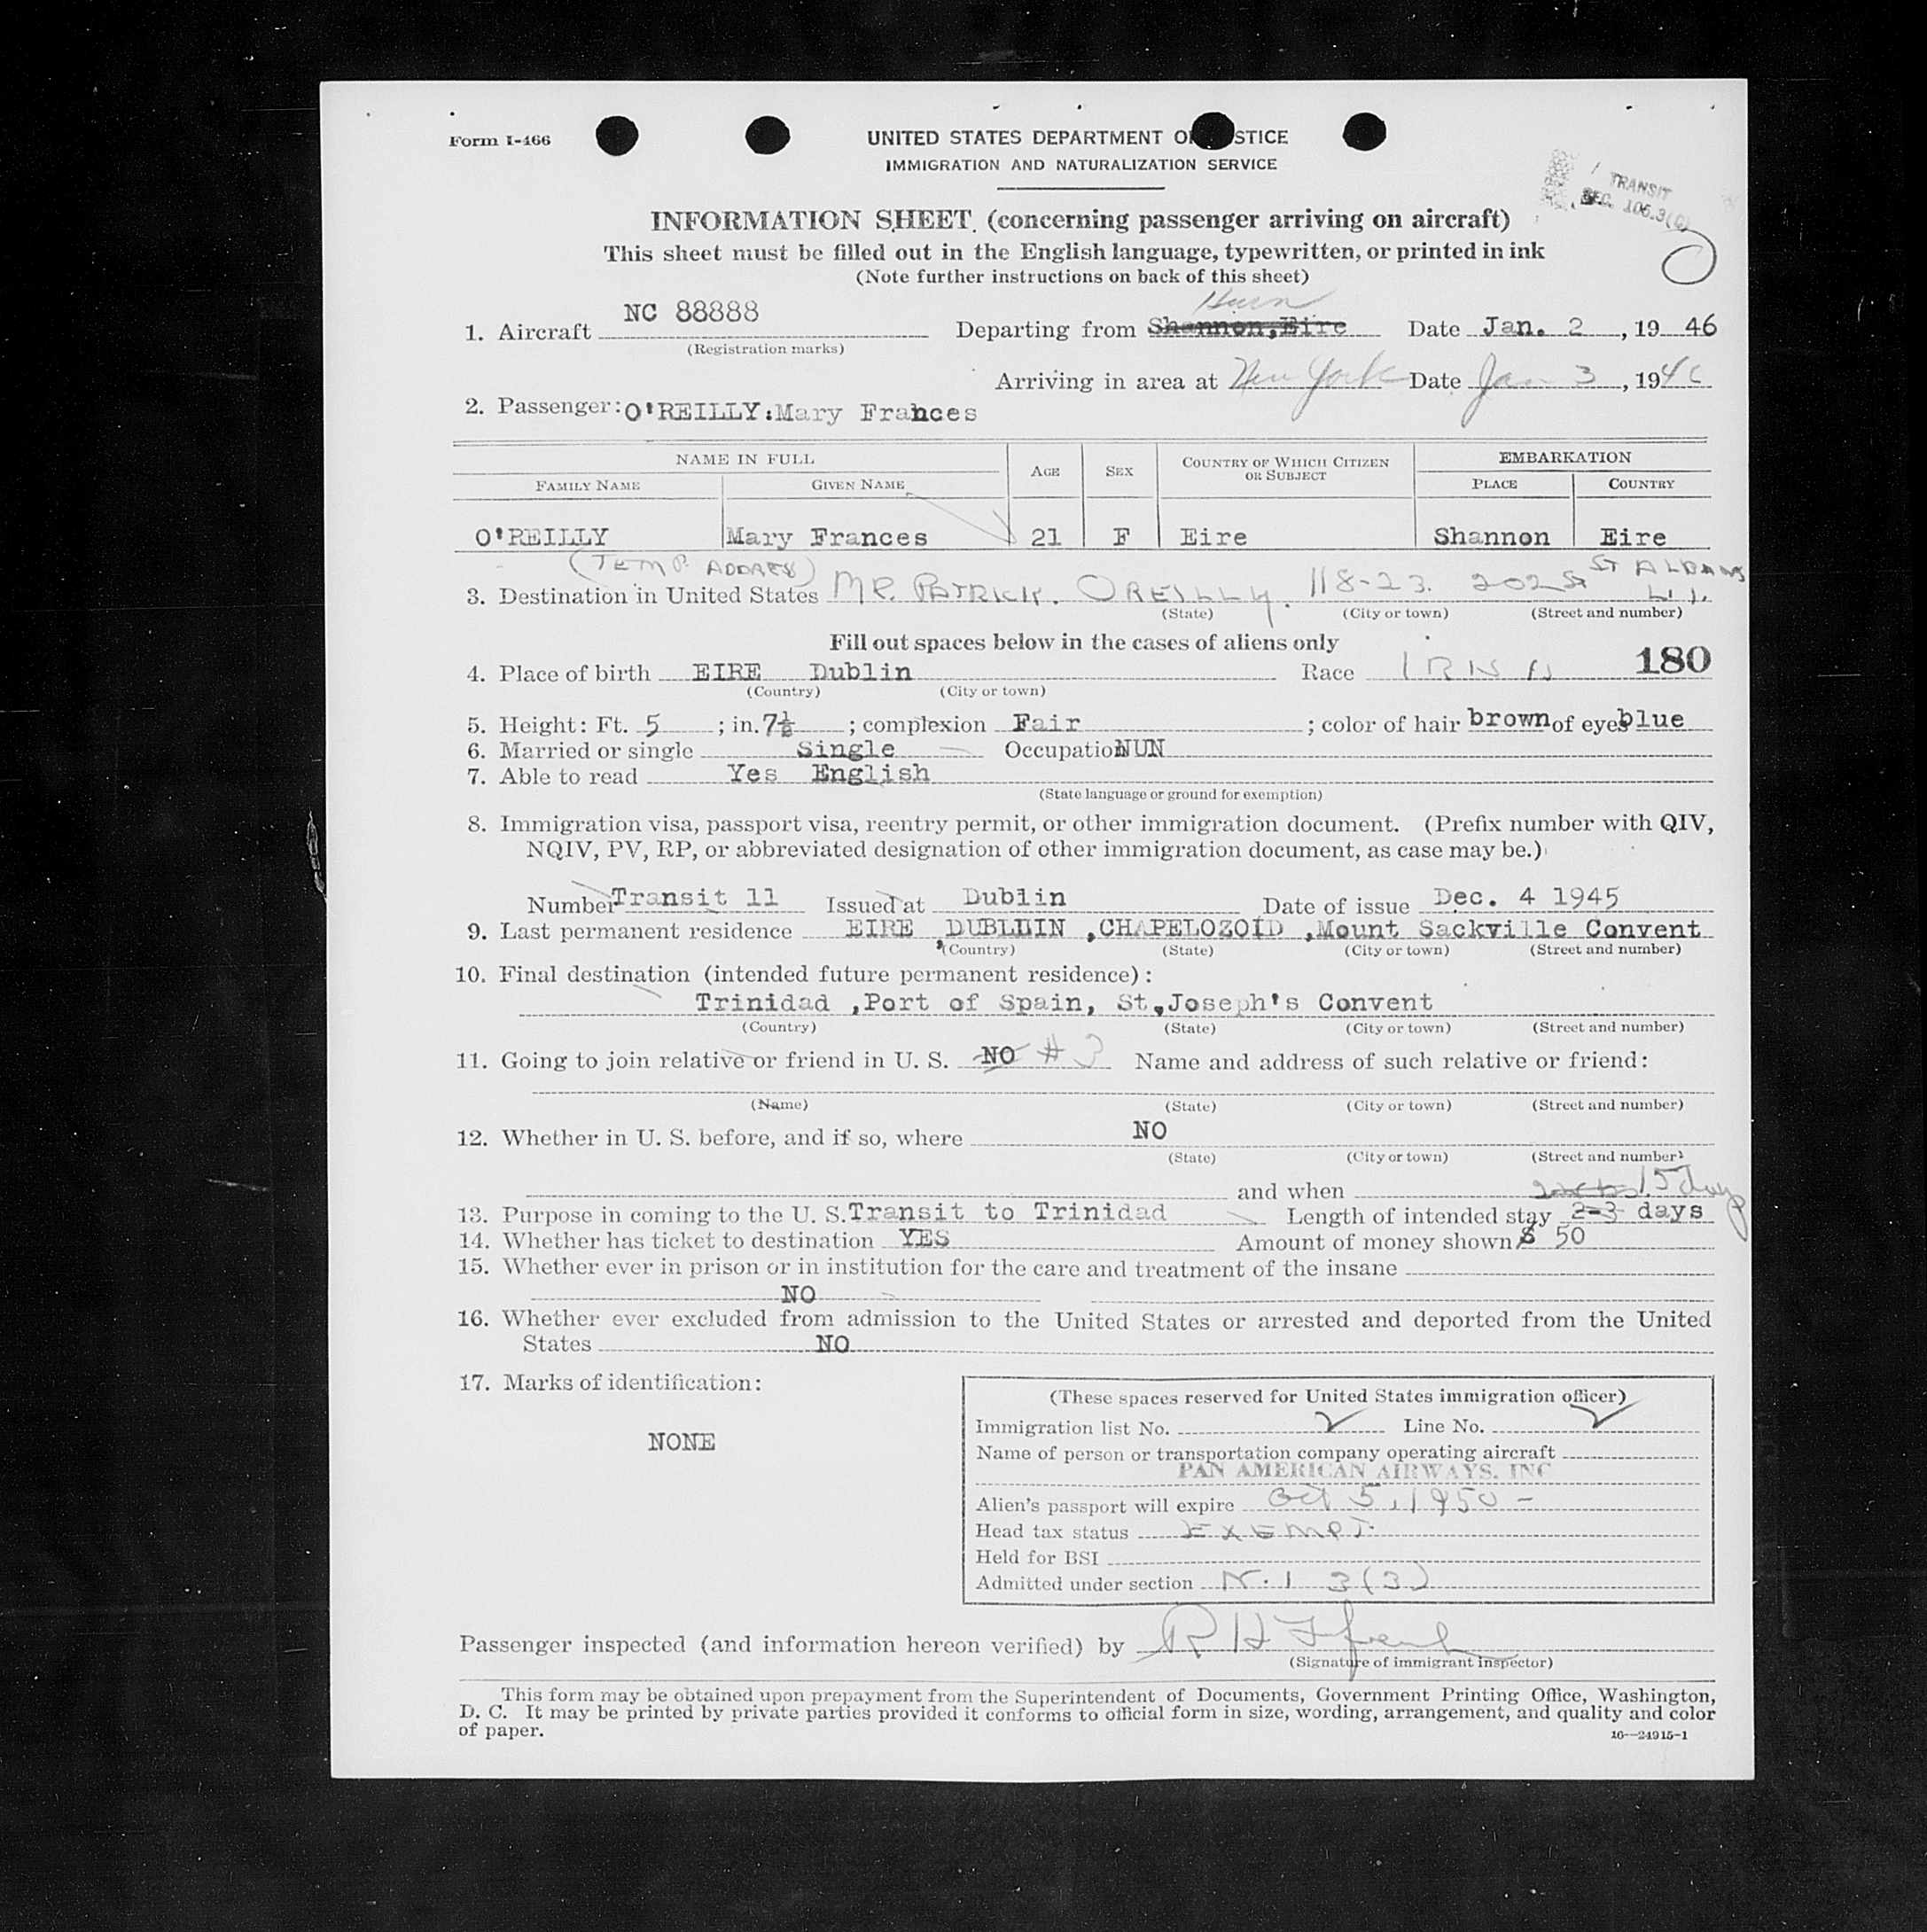 Form I-466
UNITED STATES DEPARTMENT OF STICE
IMMIGRATION AND NATURALIZATION SERVICE
TRANSIT
SEC. 106.3(
INFORMATION SHEET (concerning passenger arriving on aircraft)
This sheet must be filled out in the English language, typewritten, or printed in ink
(Note further instructions on back of this sheet)
Hurn
1. Aircraft NC 88888 Departing from Shannon, Eire Date Jan. 2, 1946
(Registration marks)
Arriving in area at New York Date Jan 3, 1946
2. Passenger: O'REILLY: Mary Frances
NAME IN FULL AGE SEX COUNTRY OF WHICH CITIZEN OR SUBJECT EMBARKATION
FAMILY NAME GIVEN NAME PLACE COUNTRY
O'REILLY Mary Frances 21 F Eire Shannon Eire
(TEMP. ADDRESS) ST ALBANS
3. Destination in United States MR. PATRICK. OREILLY. 118-23. 202 St L.I.
(State) (City or town) (Street and number)
Fill out spaces below in the cases of aliens only
4. Place of birth EIRE Dublin Race IRISH 180
(Country) (City or town)
5. Height: Ft. 5; in. 7½; complexion Fair; color of hair brown of eyes blue
6. Married or single Single Occupation NUN
7. Able to read Yes English
(State language or ground for exemption)
8. Immigration visa, passport visa, reentry permit, or other immigration document. (Prefix number with QIV,
NQIV, PV, RP, or abbreviated designation of other immigration document, as case may be.)
Number Transit 11 Issued at Dublin Date of issue Dec. 4 1945
9. Last permanent residence EIRE, DUBLIIN ,CHAPELOZOID ,Mount Sackville Convent
(Country) (State) (City or town) (Street and number)
10. Final destination (intended future permanent residence):
Trinidad ,Port of Spain, St,Joseph's Convent
(Country) (State) (City or town) (Street and number)
11. Going to join relative or friend in U. S. NO # 3 Name and address of such relative or friend:
(Name) (State) (City or town) (Street and number)
12. Whether in U. S. before, and if so, where NO
(State) (City or town) (Street and number)
and when 15 days
13. Purpose in coming to the U. S. Transit to Trinidad Length of intended stay 2-3 days
14. Whether has ticket to destination YES Amount of money shown $ 50
15. Whether ever in prison or in institution for the care and treatment of the insane
NO
16. Whether ever excluded from admission to the United States or arrested and deported from the United
States NO
17. Marks of identification:
NONE
(These spaces reserved for United States immigration officer)
Immigration list No. 2 Line No. 2
Name of person or transportation company operating aircraft
PAN AMERICAN AIRWAYS, INC
Alien's passport will expire Oct 5, 1950 -
Head tax status EXEMPT.
Held for BSI
Admitted under section N.I 3(3)
Passenger inspected (and information hereon verified) by R H
(Signature of immigrant inspector)
This form may be obtained upon prepayment from the Superintendent of Documents, Government Printing Office, Washington,
D. C. It may be printed by private parties provided it conforms to official form in size, wording, arrangement, and quality and color
of paper.
16—24915-1